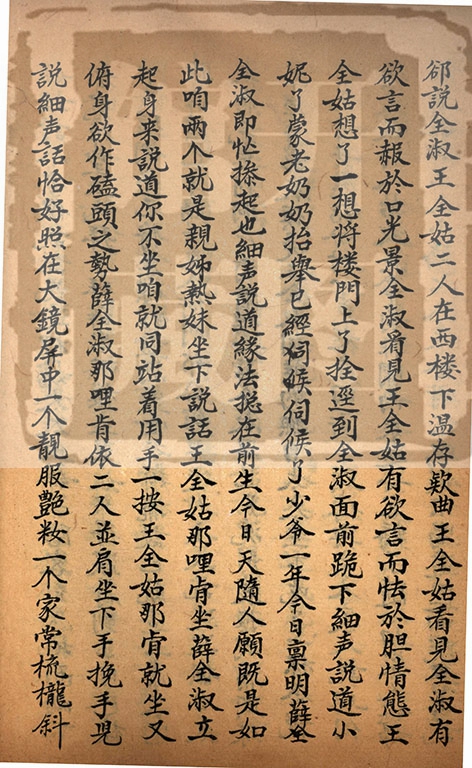 郤說全淑王全姑二人在西楼下温存欵曲王全姑看見全淑有
欲言而赧於口光景全淑看見王全姑有欲言而怯於胆情態王
全姑想了一想将楼門上了拴逕到全淑面前跪下細声說道小
妮了蒙老奶奶抬舉已經伺候伺候了少爷一年今日禀明薛全
全淑即忙搽起也細声說道緣法捴在前生今日天隨人願既是如
此咱両个就是親姊熱妹坐下説話王全姑那哩肯坐薛全淑立
起身来説道你不坐咱就同站着用手一按王全姑那肯就坐又
俯身欲作磕頭之勢薛全淑那哩肯依二人並肩坐下手挽手児
說細声話恰好照在大鏡屏中一个靚服艷籹一个家常梳櫳斜